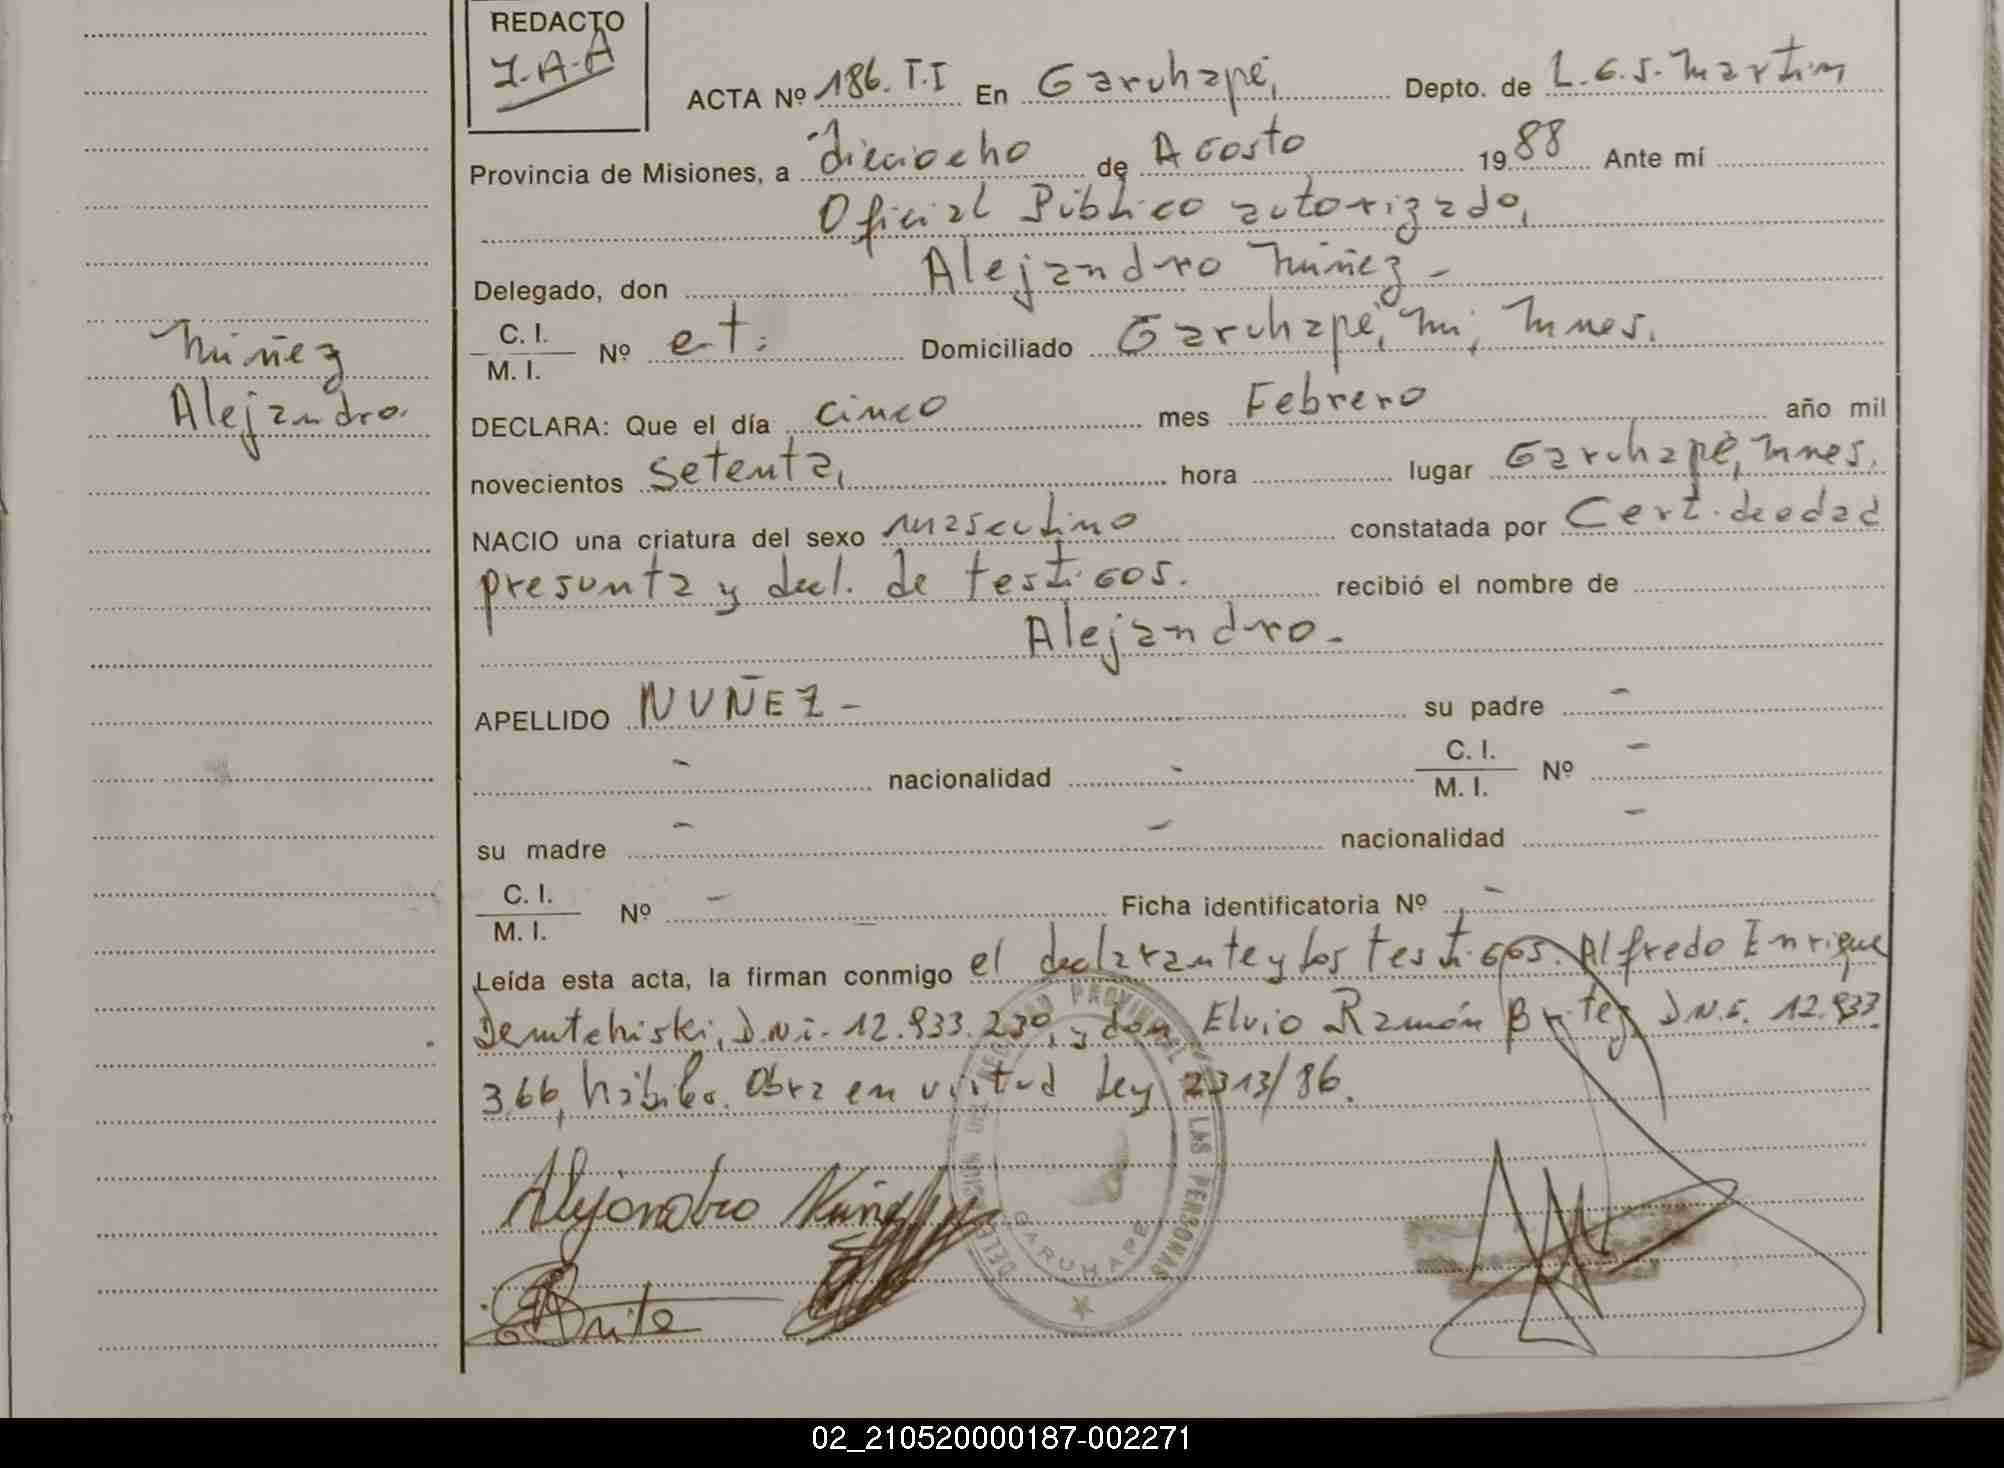 REDACTO
I.A.A
ACTA Nº 186. T.I En Garuhapé, Depto. de L.G.S. Martín
Provincia de Misiones, a dieciocho de Agosto 1988 Ante mí
Oficial Público autorizado,
Delegado, don Alejandro Núñez -
C. I. / M. I. Nº e.t. Domiciliado Garuhapé, Mi, Mnes.
Núñez
Alejandro.
DECLARA: Que el día cinco mes Febrero año mil
novecientos setenta, hora lugar Garuhapé, Mnes.
NACIO una criatura del sexo masculino constatada por Cert. de edad
presunta y decl. de testigos. recibió el nombre de
Alejandro.-
APELLIDO NUÑEZ - su padre -
- nacionalidad - C. I. / M. I. Nº -
su madre - - nacionalidad -
C. I. / M. I. Nº - Ficha identificatoria Nº -
Leída esta acta, la firman conmigo el declarante y los testigos. Alfredo Enrique
Demtchiski, D.N.i. 12.933.230, y don Elvio Ramón Britez D.N.i. 12.933.
366, hábiles. Obra en virtud Ley 2313/86.
DELEGACION DEL REGISTRO PROVINCIAL DE LAS PERSONAS
GARUHAPE
Alejandro Núñez
02_210520000187-002271